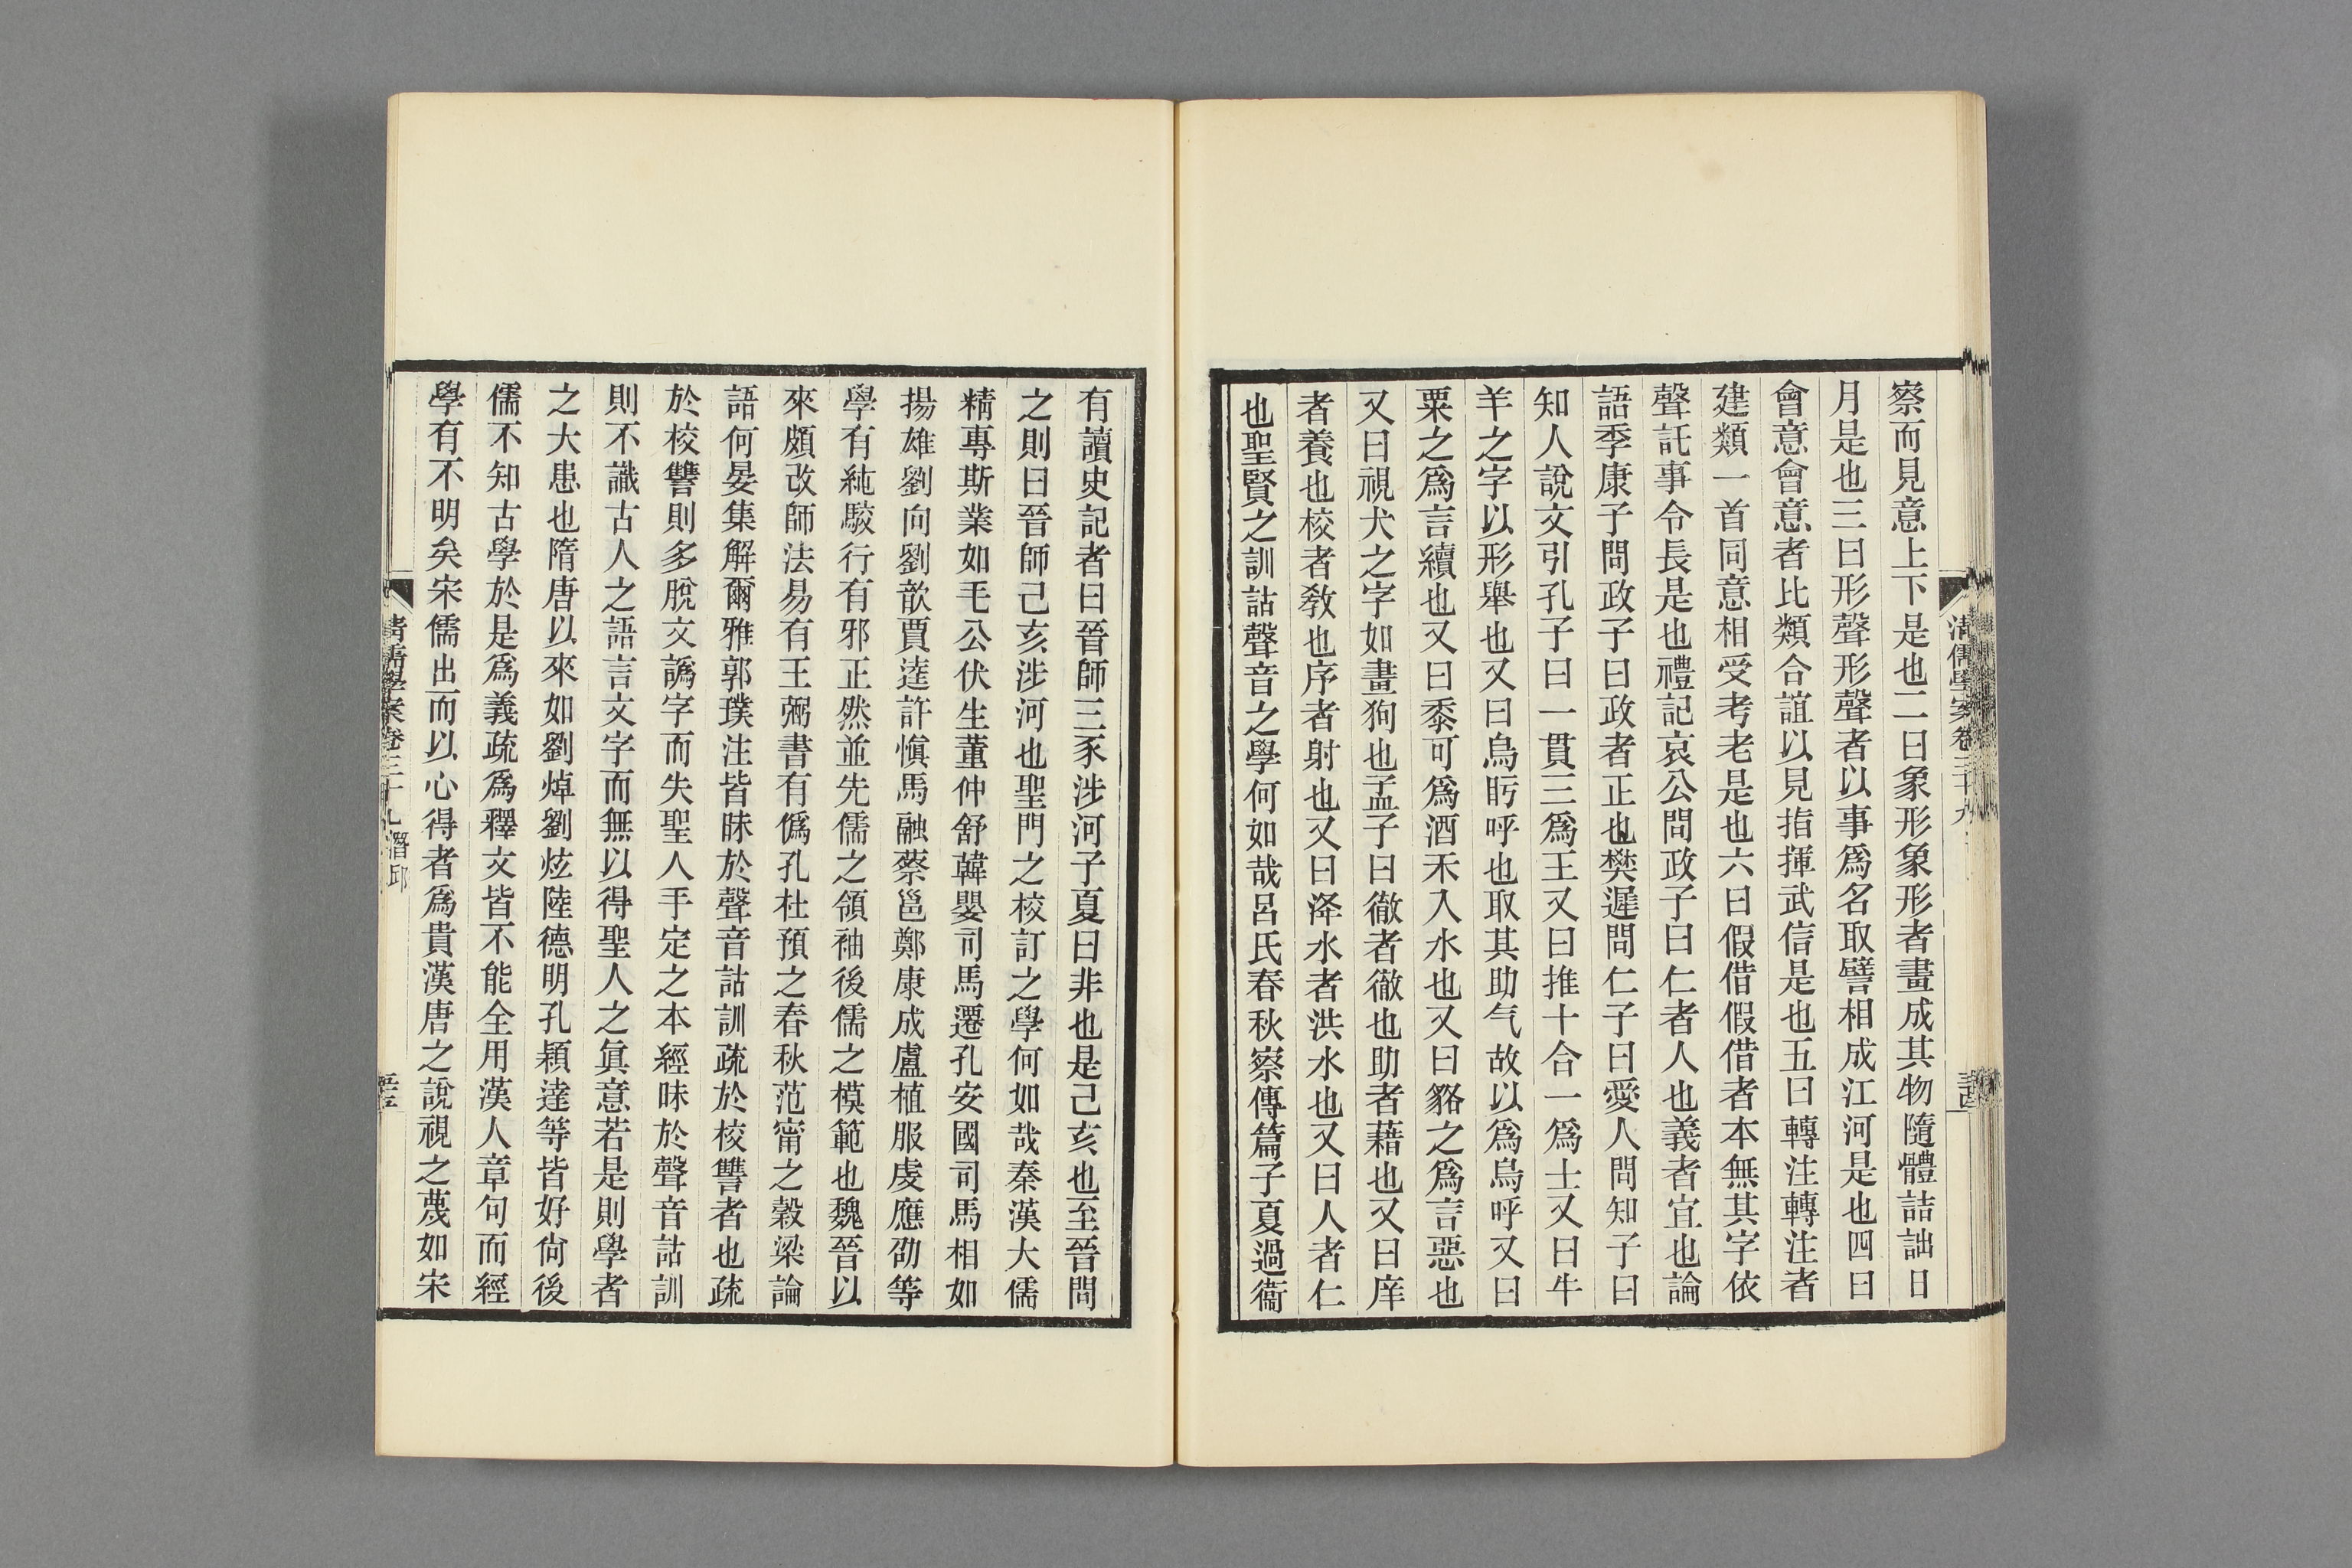 察而見意上下是也二曰象形象形者畫成其物隨體詰詘日
月是也三曰形聲形聲者以事爲名取譬相成江河是也四曰
會意會意者比類合誼以見指撝武信是也五曰轉注轉注者
建類一首同意相受考老是也六曰假借假借者本無其字依
聲託事令長是也禮記哀公問政子曰仁者人也義者宜也論
語季康子問政子曰政者正也樊遲問仁子曰愛人問知子曰
知人說文引孔子曰一貫三爲王又曰推十合一爲士又曰牛
羊之字以形舉也又曰烏盱呼也取其助气故以爲烏呼又曰
粟之爲言續也又曰黍可爲酒禾入水也又曰貉之爲言惡也
又曰視犬之字如畫狗也孟子曰徹者徹也助者藉也又曰庠
者養也校者敎也序者射也又曰洚水者洪水也又曰人者仁
也聖賢之訓詁聲音之學何如哉呂氏春秋察傳篇子夏過衞
有讀史記者曰晉師三豕涉河子夏曰非也是己亥也至晉問
之則曰晉師己亥涉河也聖門之校訂之學何如哉秦漢大儒
精專斯業如毛公伏生董仲舒韓嬰司馬遷孔安國司馬相如
揚雄劉向劉歆賈逵許愼馬融蔡邕鄭康成盧植服虔應劭等
學有純駁行有邪正然並先儒之領袖後儒之模範也魏晉以
來頗改師法易有王弼書有僞孔杜預之春秋范甯之穀梁論
語何晏集解爾雅郭璞注皆昧於聲音詁訓疏於校讐者也疏
於校讐則多脫文譌字而失聖人手定之本經昧於聲音詁訓
則不識古人之語言文字而無以得聖人之眞意若是則學者
之大患也隋唐以來如劉焯劉炫陸德明孔穎達等皆好尙後
儒不知古學於是爲義疏爲釋文皆不能全用漢人章句而經
學有不明矣宋儒出而以心得者爲貴漢唐之說視之蔑如宋
清儒學案卷三十九 潛邱